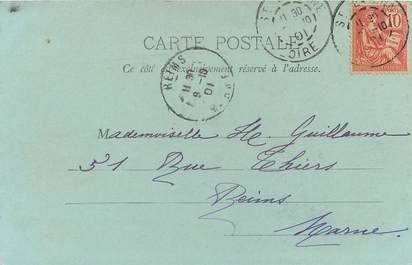 CARTE POSTALE
Ce côté est exclusivement réservé à l'adresse.
10
REIMS
11 30
9 -10
01
11 30
01
Mademoiselle H. Guillaume
51 Rue Thiers
Reims
Marne.